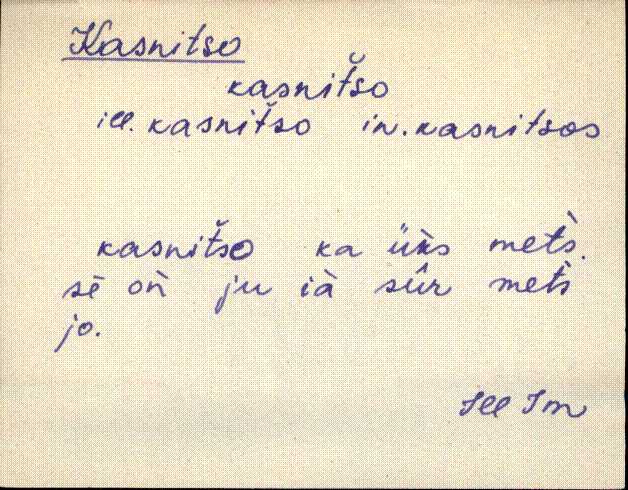 Kasnitso
kasnitšo
ill. kasnitšo in. kasnitsos
kasnitšo ka üks̀ met̀s.
sē oǹ ju ià sûr met̀s
jo.